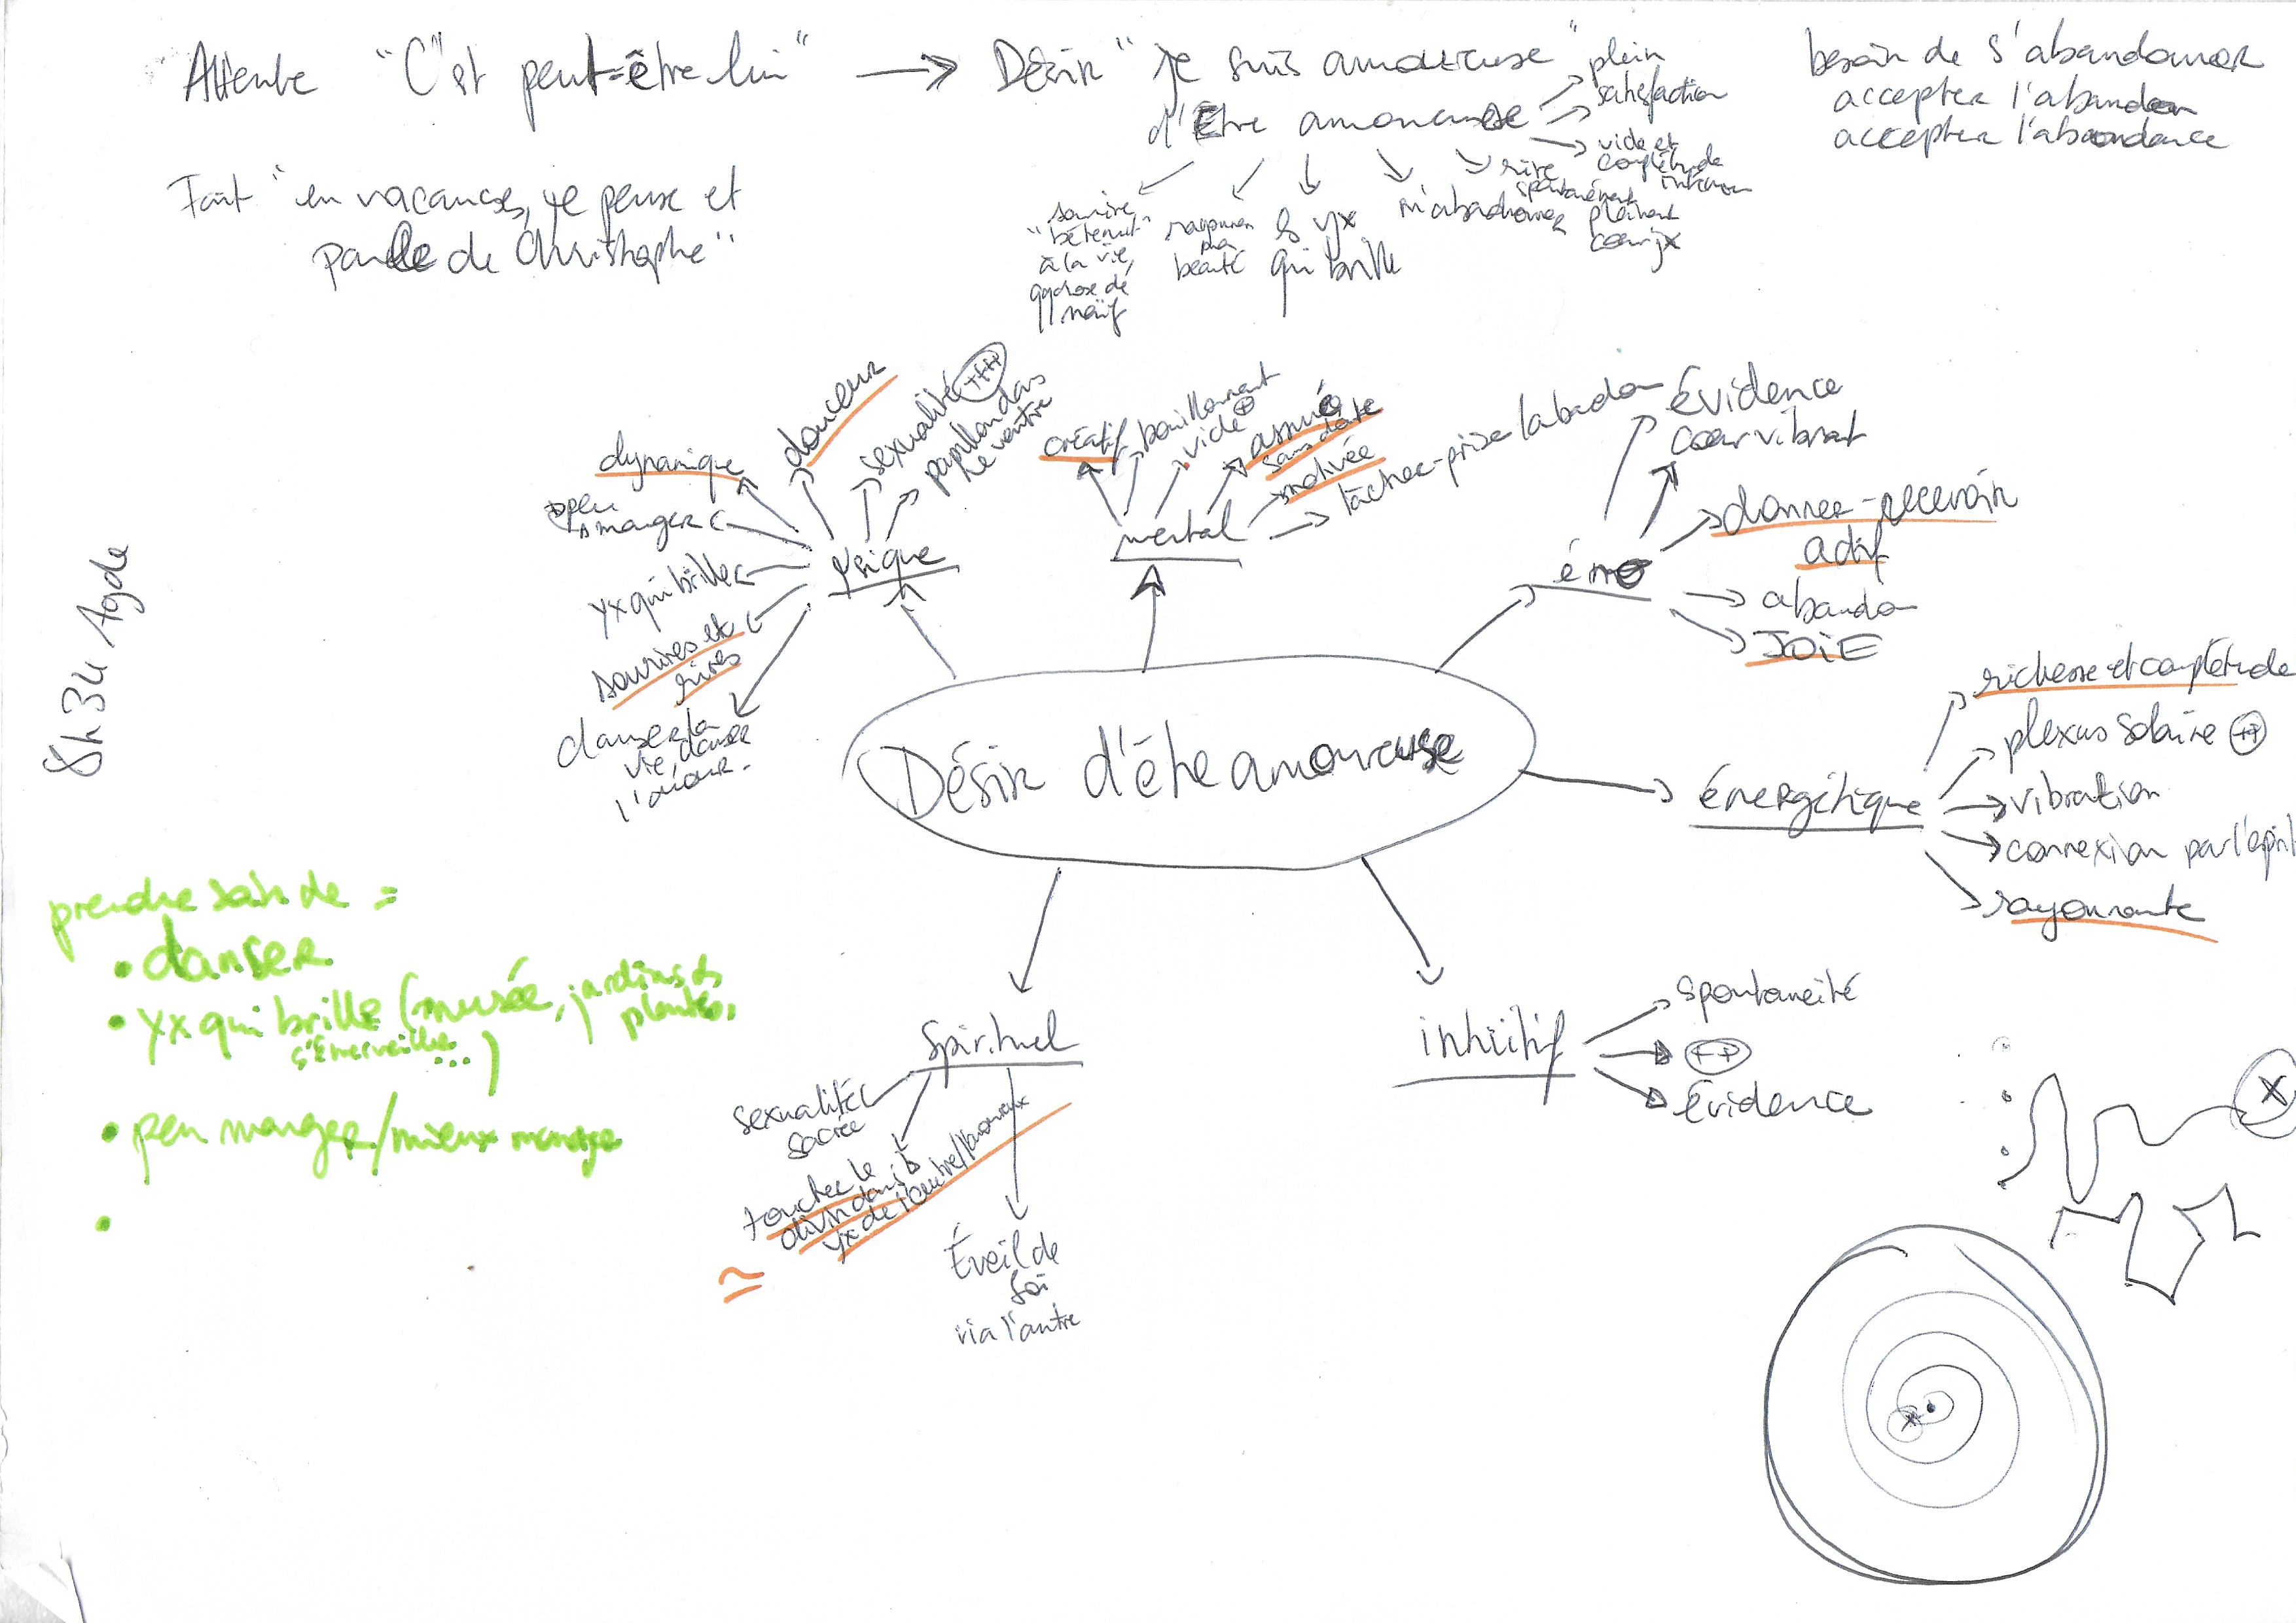 Attente "C'est peut-être lui" → Désir "je suis amoureuse"
d'Être amoureuse
plein
satisfaction
vide et
complétude
intérieur
rire
spontanément
plein
m'abandonner
les yx
qui brille
rayonner
ma
beauté
sourire
"bêtement"
à la vie,
qqchose de
naïf
besoin de s'abandonner
accepter l'abandon
accepter l'abondance
Fait "en vacances, je pense et
parle de Christophe"
8h34 Agde
Désir d'être amoureuse
ysique
dynamique
douceur
sexualité +++
papillon dans
le ventre
peu
manger
yx qui brille
sourires et
rires
danser la
vie, danse
l'amour.
mental
créatif
bouillonnant
vide +
assurée
sans doute
motivée
lâcher-prise / abandon
émo
Évidence
cœur vibrant
donner-recevoir
actif
abandon
JOiE
énergétique
richesse et complétude
plexus solaire ++
vibration
connexion par l'esprit
rayonnante
intuitif
spontanéité
++
Évidence
spirituel
sexualité
sacrée
toucher le
divin dans les
yx de l'autre/l'amoureux
≃
Éveil de
soi
via l'autre
prendre soin de =
• danser
• yx qui brille (musée, jardins des
plantes,
s'émerveille...)
• peu manger/mieux manger
•